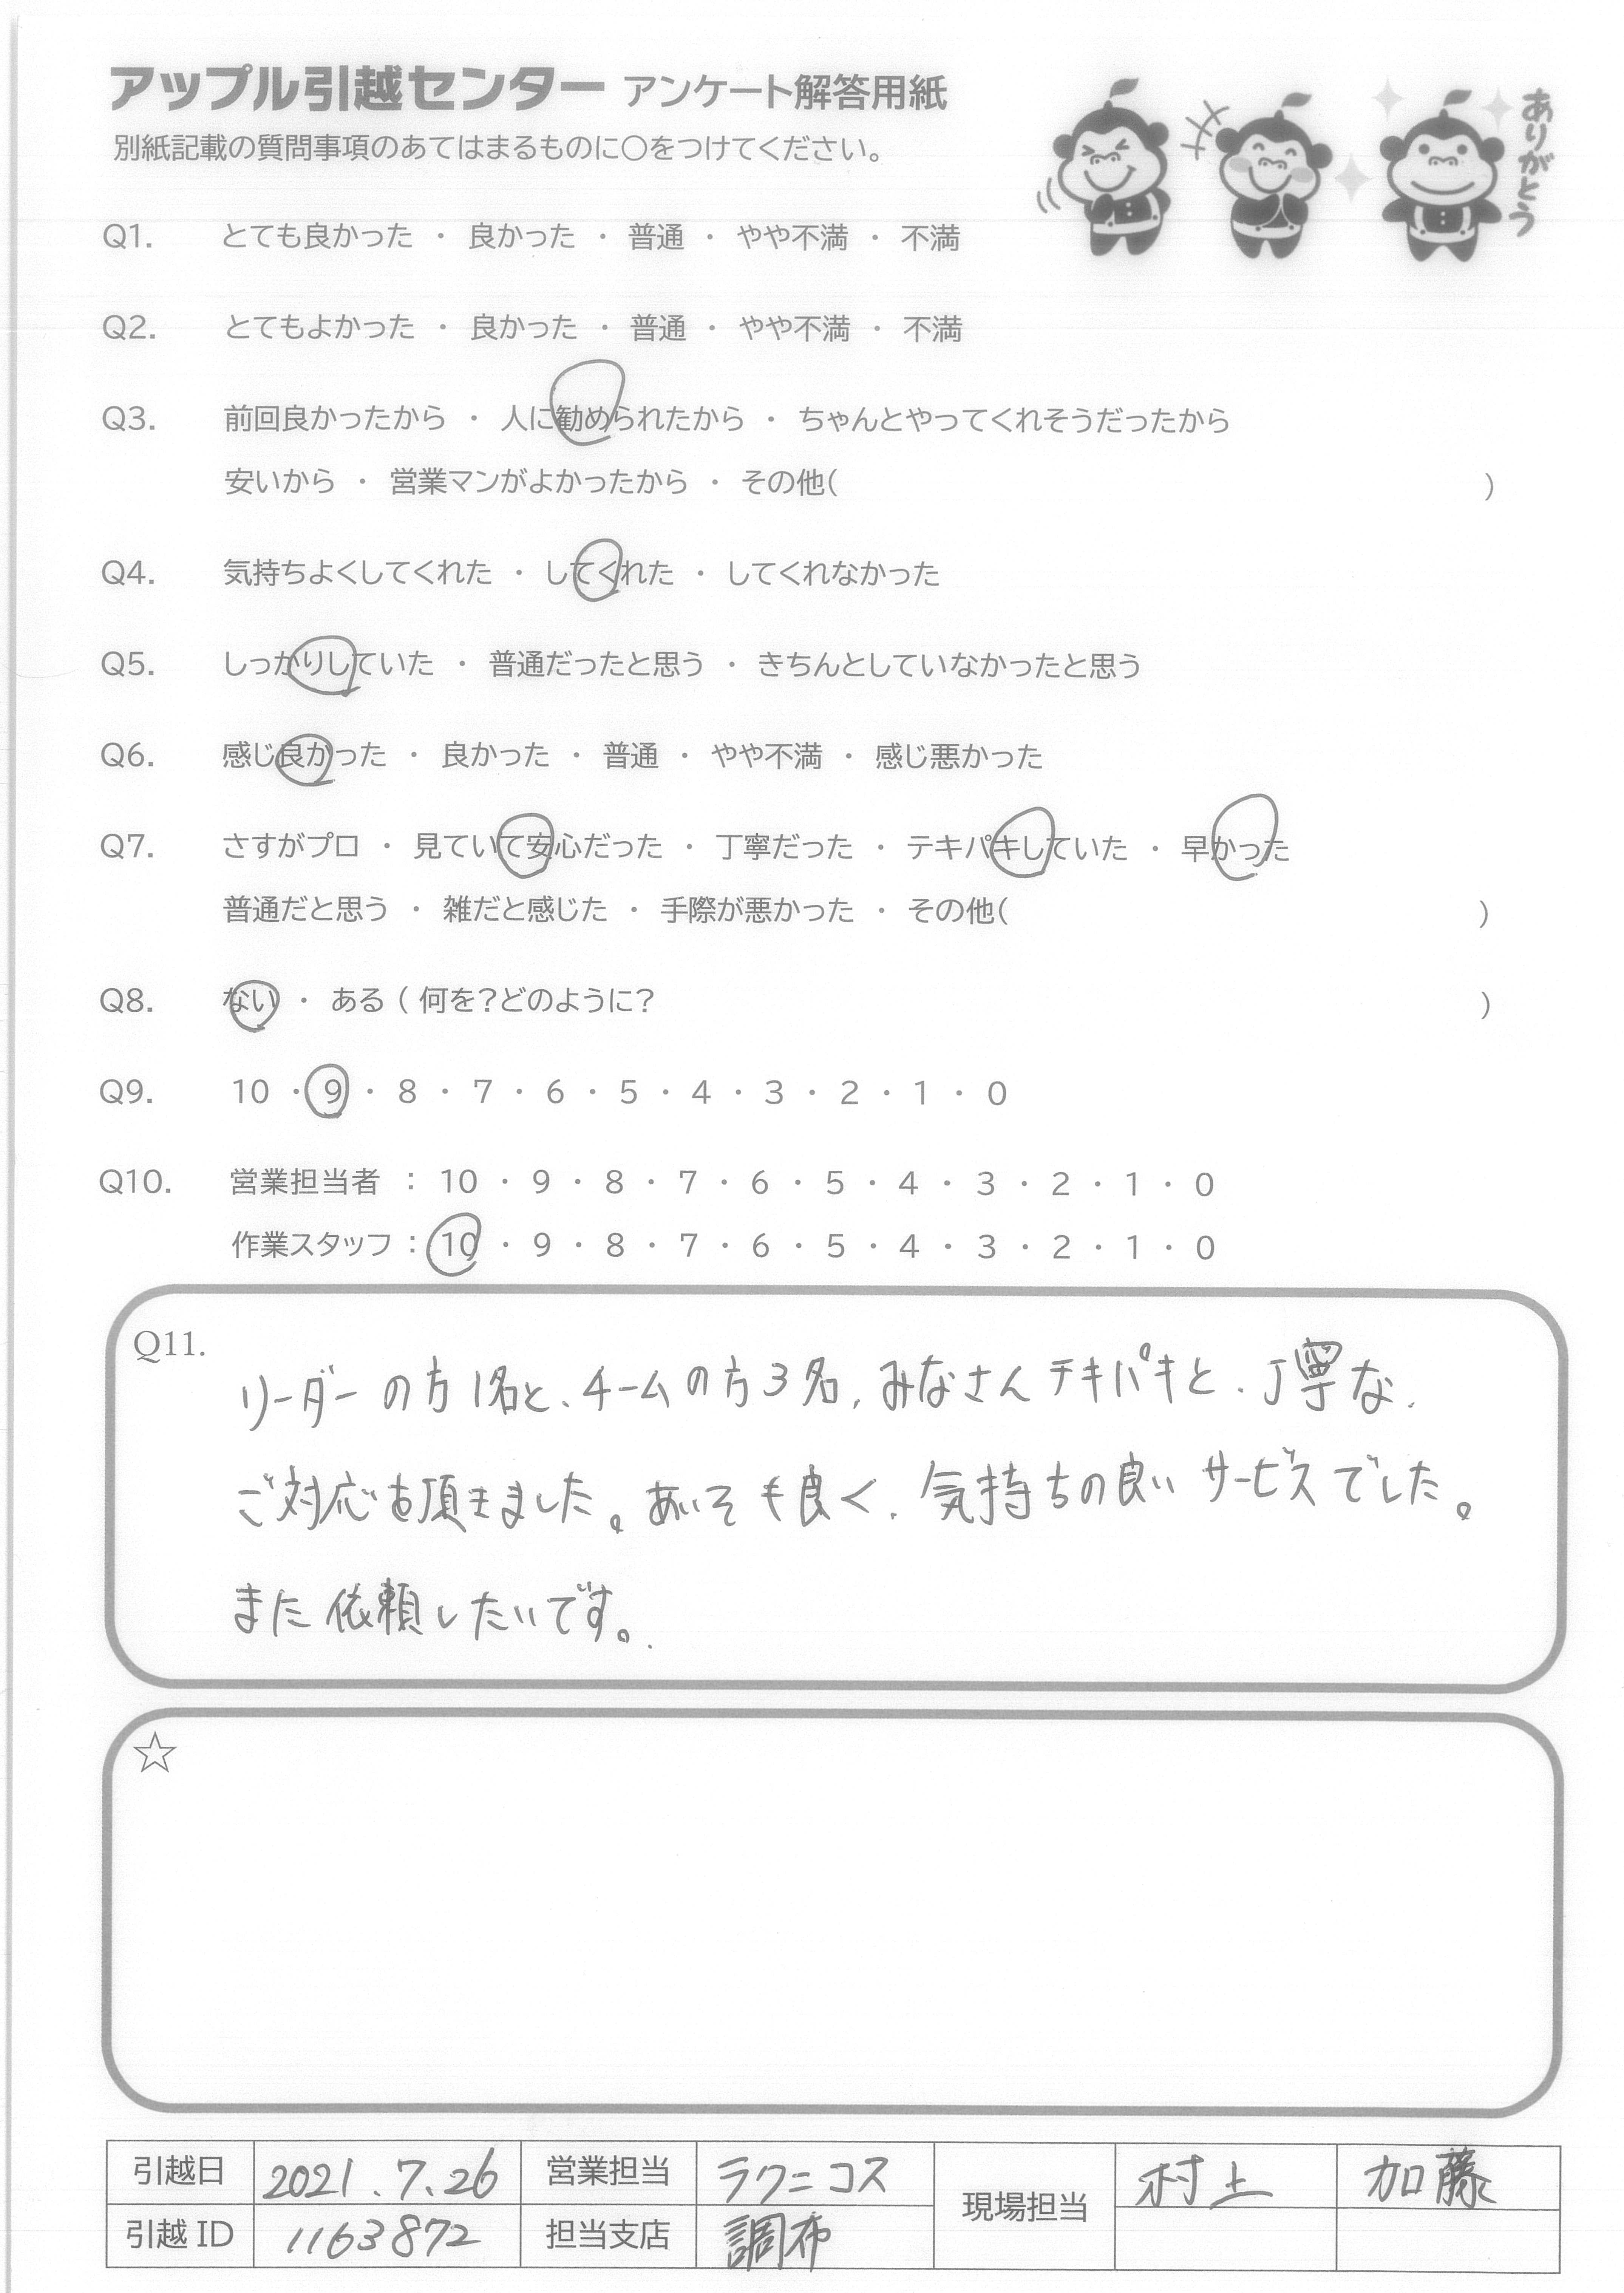 アップル引越センター アンケート解答用紙
別紙記載の質問事項のあてはまるものに○をつけてください。
ありがとう
Q1. とても良かった ・ 良かった ・ 普通 ・ やや不満 ・ 不満
Q2. とてもよかった ・ 良かった ・ 普通 ・ やや不満 ・ 不満
Q3. 前回良かったから ・ 人に勧められたから ・ ちゃんとやってくれそうだったから
安いから ・ 営業マンがよかったから ・ その他( )
Q4. 気持ちよくしてくれた ・ してくれた ・ してくれなかった
Q5. しっかりしていた ・ 普通だったと思う ・ きちんとしていなかったと思う
Q6. 感じ良かった ・ 良かった ・ 普通 ・ やや不満 ・ 感じ悪かった
Q7. さすがプロ ・ 見ていて安心だった ・ 丁寧だった ・ テキパキしていた ・ 早かった
普通だと思う ・ 雑だと感じた ・ 手際が悪かった ・ その他( )
Q8. ない ・ ある ( 何を?どのように? )
Q9. 10 ・ 9 ・ 8 ・ 7 ・ 6 ・ 5 ・ 4 ・ 3 ・ 2 ・ 1 ・ 0
Q10. 営業担当者 : 10 ・ 9 ・ 8 ・ 7 ・ 6 ・ 5 ・ 4 ・ 3 ・ 2 ・ 1 ・ 0
作業スタッフ : 10 ・ 9 ・ 8 ・ 7 ・ 6 ・ 5 ・ 4 ・ 3 ・ 2 ・ 1 ・ 0
Q11.
リーダーの方1名と、チームの方3名、みなさんテキパキと、丁寧な
ご対応を頂きました。あいそも良く、気持ちの良いサービスでした。
また依頼したいです。
☆
引越日 2021.7.26 営業担当 ラクニコス 現場担当 村上 加藤
引越 ID 1163872 担当支店 調布